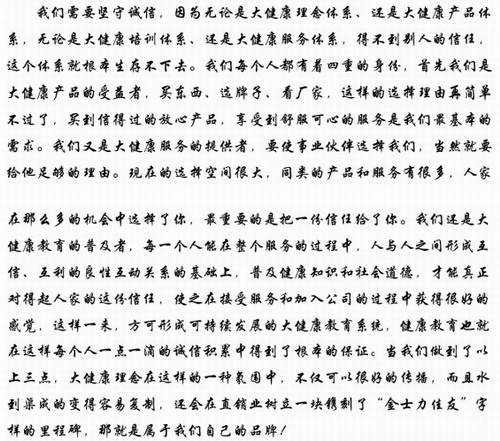 我们需要坚守诚信，因为无论是大健康理念体系、还是大健康产品体
系，无论是大健康培训体系、还是大健康服务体系，得不到别人的信任，
这个体系就根本生存不下去。我们每个人都有着四重的身份，首先我们是
大健康产品的受益者，买东西、选牌子、看厂家，这样的选择理由再简单
不过了，买到信得过的放心产品，享受到舒服可心的服务是我们最基本的
需求。我们又是大健康服务的提供者，要使事业伙伴选择我们，当然就要
给他足够的理由。现在的选择空间很大，同类的产品和服务有很多，人家
在那么多的机会中选择了你，最重要的是把一份信任给了你。我们还是大
健康教育的普及者，每一个人能在整个服务的过程中，人与人之间形成互
信、互利的良性互动关系的基础上，普及健康知识和社会道德，才能真正
对得起人家的这份信任，使之在接受服务和加入公司的过程中获得很好的
感觉，这样一来，方可形成可持续发展的大健康教育系统，健康教育也就
在这样每个人一点一滴的诚信积累中得到了根本的保证。当我们做到了以
上三点，大健康理念在这样的一种氛围中，不仅可以很好的传播，而且水
到渠成的变得容易复制，还会在直销业树立一块镌刻了“金士力佳友”字
样的里程碑，那就是属于我们自己的品牌！